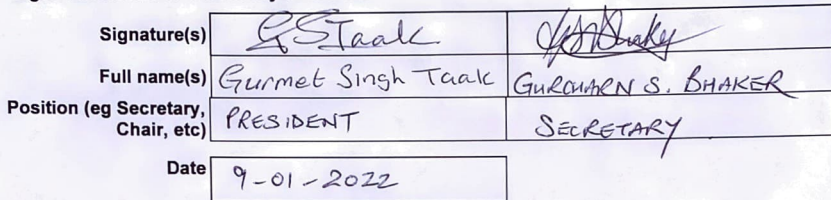 Signature(s) GSTaalk
Full name(s) Gurmet Singh Taak GURCHARN S. BHAKER
Position (eg Secretary, PRESIDENT SECRETARY
Chair, etc)
Date 9-01-2022